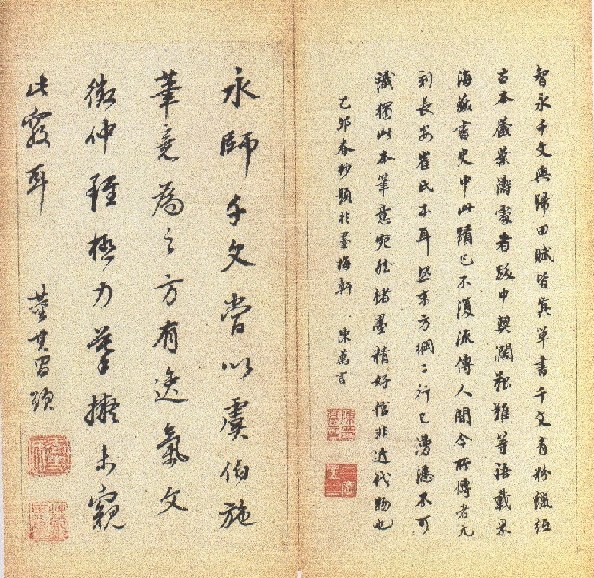 智永千文與歸田賦皆真草書千文青粉蠟紙
古本藏葉濤處者跋中契闊艱難等語載米
海嶽書史中此蹟已不復流傳人間今所傳者
刻長安崔氏本耳然東方綱二行已漫漶不可
識獨此本筆意宛然楮墨精好信非近代物也
己卯春抄題於墨梅軒 陳萬言
永師千文當以虞伯施
筆意為之方有逸氣文
徵仲雖極力摹擬未窺
此竅耳 董其昌題